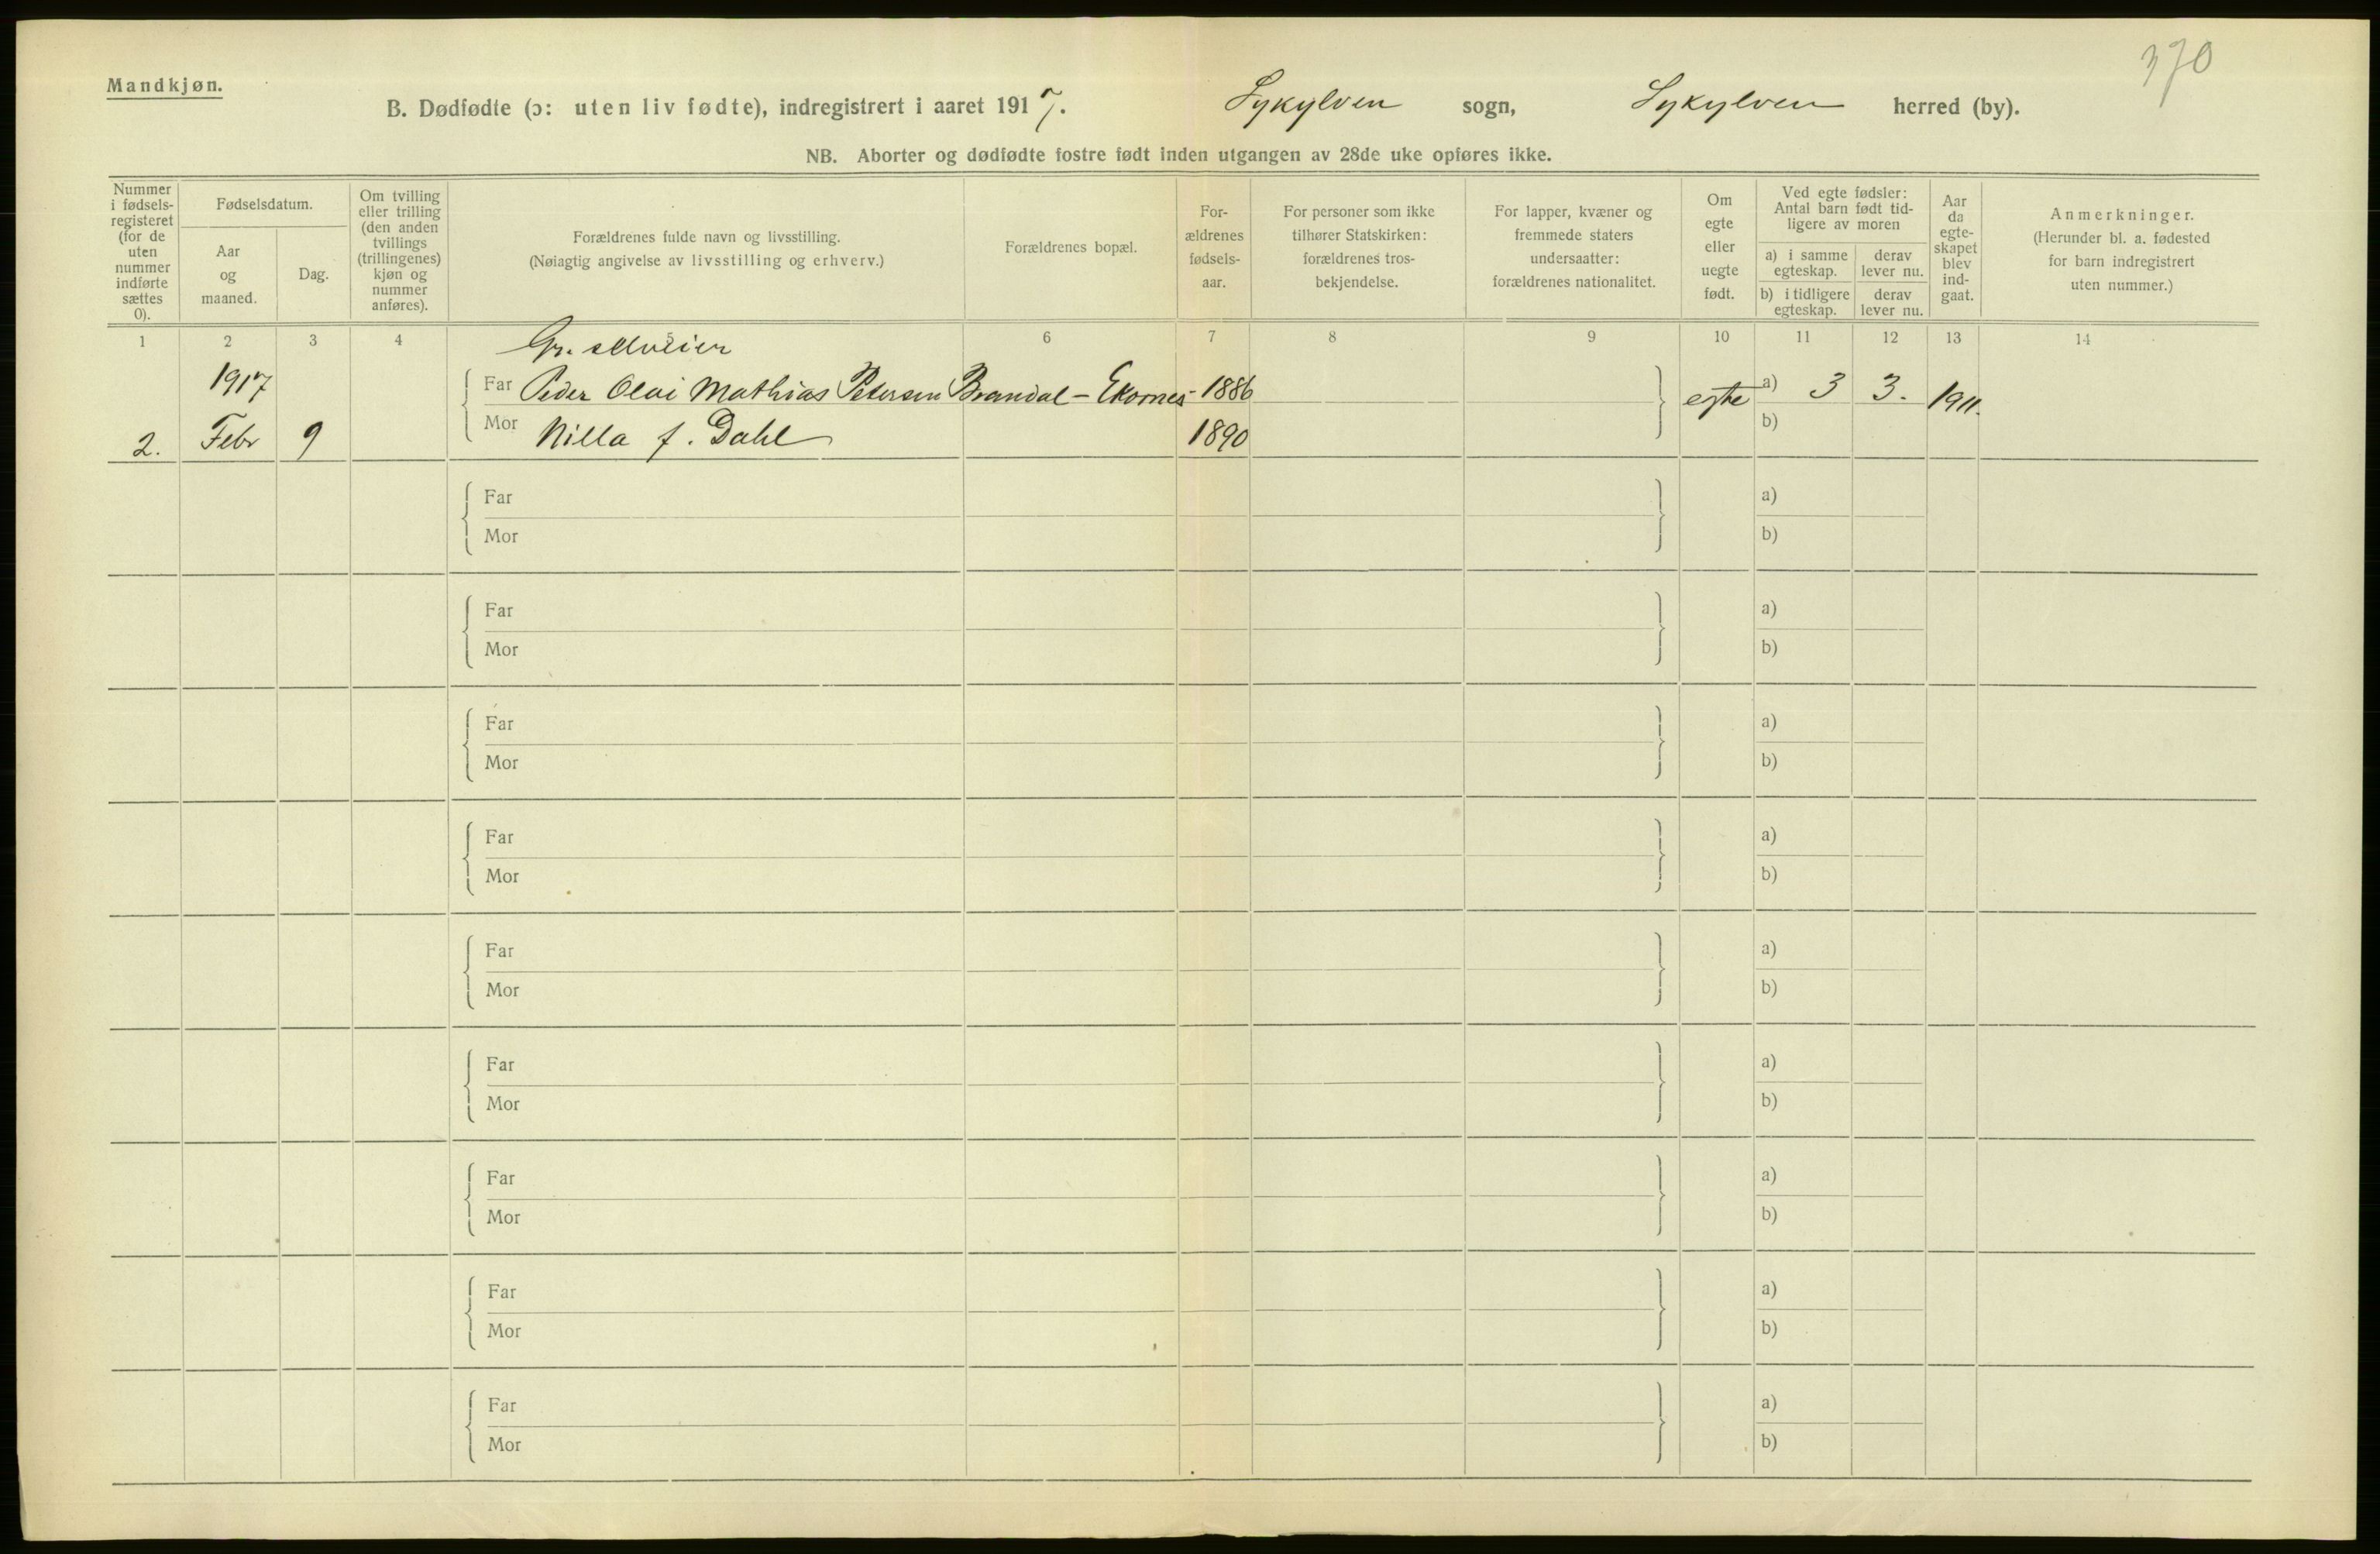 370
Mandkjøn.
B. Dødfødte (ɔ: uten liv fødte), indregistrert i aaret 1917. Sykylven sogn, Sykylven herred (by).
NB. Aborter og dødfødte fostre født inden utgangen av 28de uke opføres ikke.
Nummer
i fødsels-
registeret
(for de
uten
nummer
indførte
sættes
0).
Fødselsdatum.
Aar
og
maaned.
Dag.
Om tvilling
eller trilling
(den anden
tvillings
(trillingenes)
kjøn og
nummer
anføres).
Forældrenes fulde navn og livsstilling.
(Nøiagtig angivelse av livsstilling og erhverv.)
Forældrenes bopæl.
For-
ældrenes
fødsels-
aar.
For personer som ikke
tilhører Statskirken:
forældrenes tros-
bekjendelse.
For lapper, kvæner og
fremmede staters
undersaatter:
forældrenes nationalitet.
Om
egte
eller
uegte
født.
Ved egte fødsler:
Antal barn født tid-
ligere av moren
a) i samme
egteskap.
derav
lever nu.
b) i tidligere
egteskap.
derav
lever nu.
Aar
da
egte-
skapet
blev
ind-
gaat.
Anmerkninger.
(Herunder bl. a. fødested
for barn indregistrert
uten nummer.)
1 2 3 4 6 7 8 9 10 11 12 13 14
Gr. selveier
1917
Far Peder Olai Mathias Petersen Brandal - Ekornes - 1886 egte a) 3 3. 1911.
Mor Nilla f. Dahl 1890 b)
2. Febr 9
Far a)
Mor b)
Far a)
Mor b)
Far a)
Mor b)
Far a)
Mor b)
Far a)
Mor b)
Far a)
Mor b)
Far a)
Mor b)
Far a)
Mor b)
Far a)
Mor b)